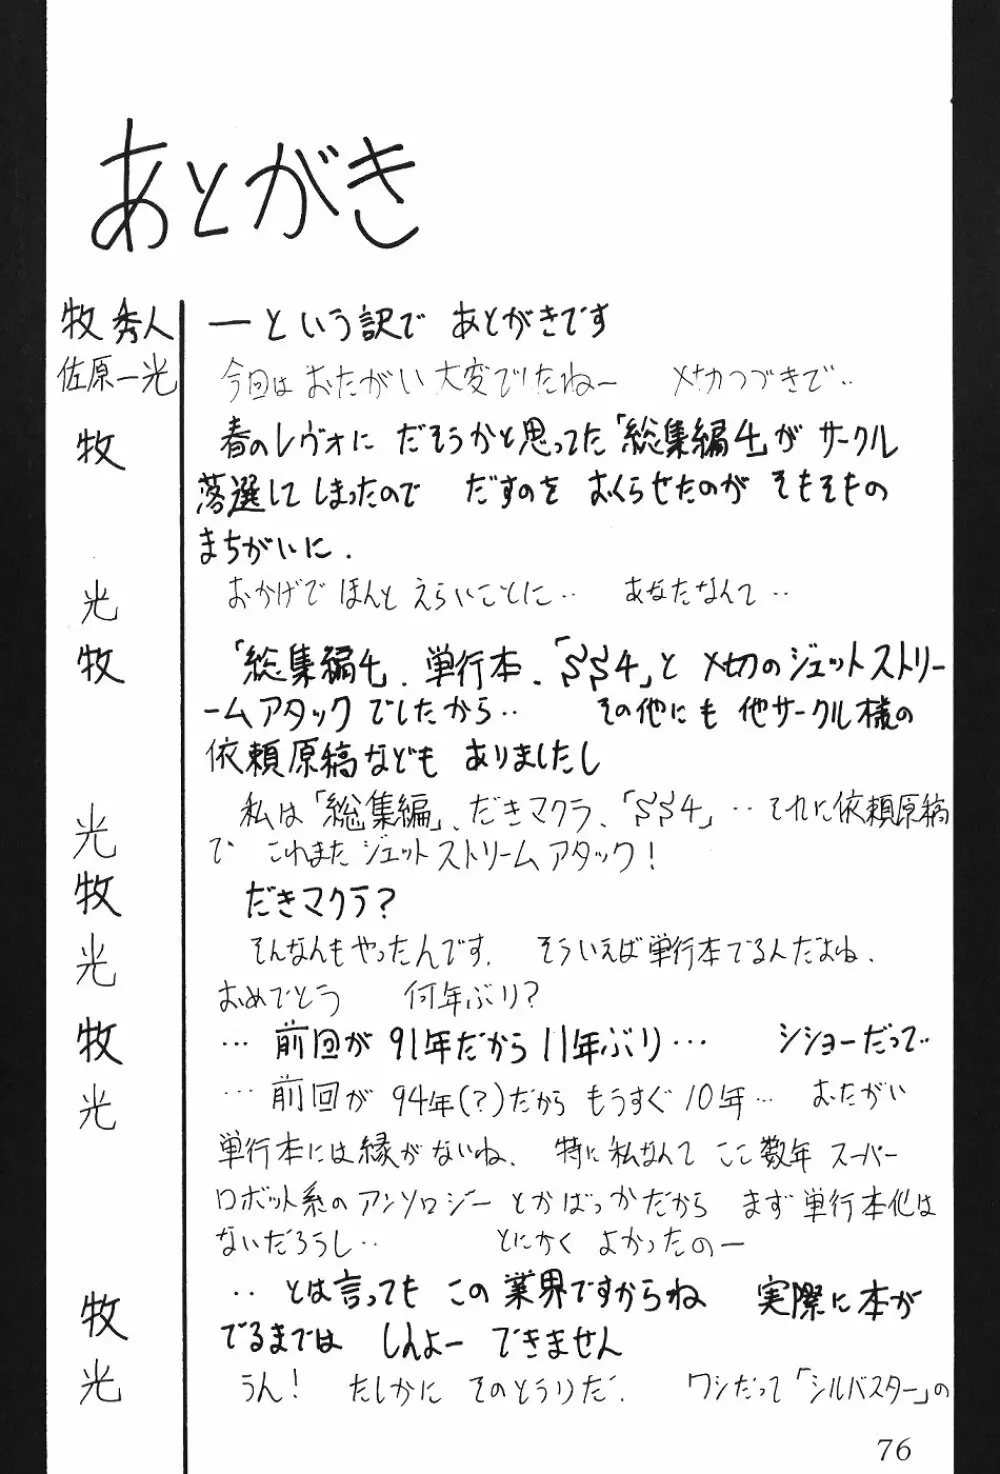 あとがき
牧秀人 ーという訳で あとがきです
佐原一光 今回は おたがい 大変でしたねー 〆切つづきで‥
牧 春のレヴォに だそうかと思ってた「総集編4」が サークル
落選して しまったので だすのを おくらせたのが そもそもの
まちがいに.
光 おかげで ほんと えらいことに‥ あなたなんて‥
牧 「総集編4、単行本、「SS4」と 〆切のジェットストリー
ームアタック でしたから‥ その他にも 他サークル様の
依頼原稿なども ありましたし
光 私は「総集編」、だきマクラ、「SS4」‥それに依頼原稿
で これまた ジェットストリームアタック!
牧 だきマクラ?
光 そんなんもやったんです. そういえば単行本でるんだよね.
おめでとう 何年ぶり?
牧 …前回が91年だから11年ぶり… シショーだって
光 …前回が94年(?)だから もうすぐ10年… おたがい
単行本には縁がないね. 特に私なんて ここ数年 スーパー
ロボット系の アンソロジー とかばっかだから まず単行本化は
ないだろうし‥ とにかく よかったのー
牧 ‥とは言っても この業界ですからね 実際に本が
でるまでは しんよー できません
光 うん! たしかに そのとうりだ. ワシだって「シルバスター」の
76